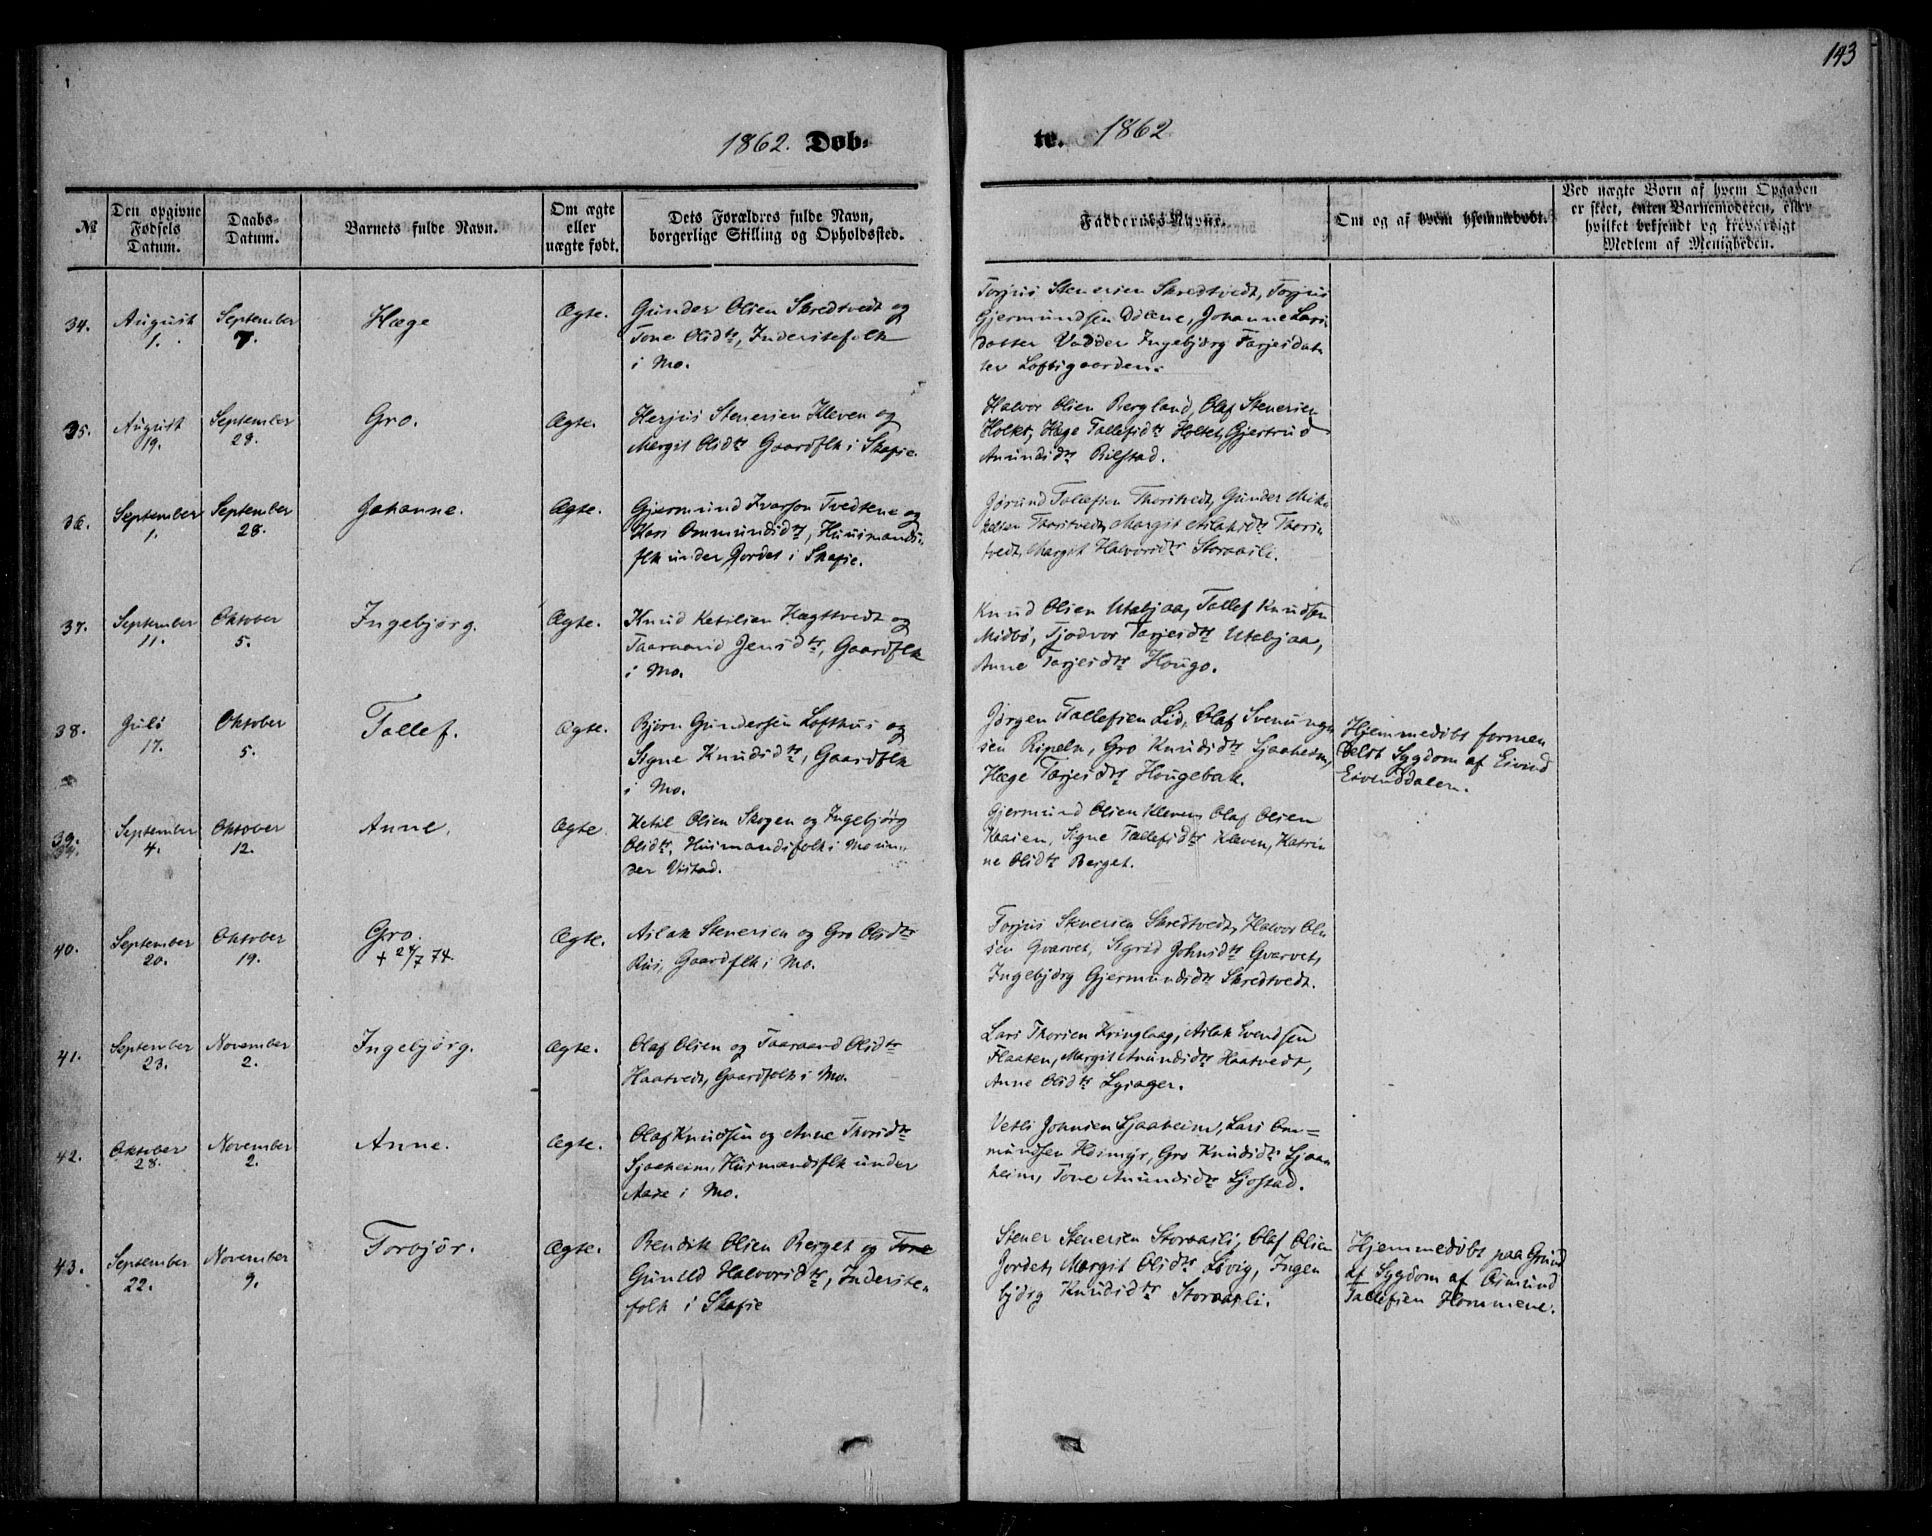 143
1862. Døb-
te. 1862
№
Den opgivne
Fødsels
Datum.
Daabs-
Datum.
Barnets fulde Navn.
Om ægte
eller
uægte født.
Dets Forældres fulde Navn,
borgerlige Stilling og Opholdssted.
Faddernes Navne.
Om og af hvem hjemmedøbt.
Ved uægte Børn af hvem Opgaven
er skeet, enten Barnemoderen, eller
hvilket bekjendt og troværdigt
Medlem af Menigheden.
34.
August
1.
September
7.
Hæge
Ægte.
Gunder Olsen Skredtvedt og
Tone Olsdtr, Inderstefolk
i Mo.
Torjus Stenersen Skredtvedt, Torjus
Gjermundsen Dalene, Johanne Lars
datter Vadder Ingebjørg Tarjesdat
ter Loftsgaarden.
35.
August
19.
September
28.
Gro.
Ægte.
Herjus Stenersen Kleven og
Margit Olsdtr Gaardflk i Skafse.
Halvor Olsen Bergland, Olaf Stenersen
Holtet, Hæge Tallefsdtr Holtet, Gjertrud
Anundsdtr Rilstad.
36.
September
1.
September
28.
Johanne.
Ægte.
Gjermund Ivarson Tvedtene og
Kari Ommundsdtr, Huusmands-
flk under Jordet i Skafse.
Jørund Tallefsen Thorstvedt, Gunder Mik
kelsen Thorstvedt, Margit Aslaksdtr Thors
tvedt, Margit Halvorsdtr Storaasli.
37.
September
11.
Oktober
5.
Ingebjørg.
Ægte.
Knud Ketilsen Hægstvedt og
Taaraand Jensdtr, Gaardflk
i Mo.
Knud Olsen Utabjaa, Tallef Knudsen
Midbø, Tjodvor Tarjesdtr Utabjaa,
Anne Tarjesdtr Hougo.
38.
Juli
17.
Oktober
5.
Tallef.
Ægte.
Bjørn Gundersen Lofthus og
Signe Knudsdtr, Gaardflk
i Mo.
Jørgen Tallefsen Lid, Olaf Svenungs
sen Ripeln, Gro Knudsdtr Sjaaheim,
Hæge Tarjesdtr Hougebak.
Hjemmedøbt formen
delst Sygdom af Eivind
Eivinddalen.
39.
34.
September
4.
Oktober
12.
Anne.
Ægte.
Ketil Olsen Skogen og Ingebjørg
Olsdtr, Husmandsfolk i Mo un-
der Vistad.
Gjermund Olsen Kleven, Olaf Olsen
Haaien, Signe Tallefsdtr Kleven, Katrin
ne Olsdtr Berget.
40.
September
20.
Oktober
19.
Gro.
+ 24/7 74.
Ægte.
Aslak Stenersen og Gro Olsdtr
Rui, Gaardflk i Mo.
Torjus Stenersen Skredtvedt, Halvor Ol
sen Qvarvet, Sigrid Johnsdtr Qvarvet,
Ingebjørg Gjermundsdtr Skredtvedt.
41.
September
23.
November
2.
Ingebjørg.
Ægte.
Olaf Olsen og Taaraand Olsdtr
Haatvedt, Gaardfolk i Mo.
Lars Thorsen Kringlaag, Aslak Svendsen
Flaaten, Margit Anundsdtr Haatvedt,
Anne Olsdtr Lysager.
42.
Oktober
28.
November
2.
Anne.
Ægte.
Olaf Knudsen og Anne Thorsdtr
Sjaaheim, Husmandsflk under
Aase i Mo.
Vetli Joansen Sjaaheim, Lars Om=
mundsen Heimyr, Gro Knudsdtr Sjaa
heim, Tone Anundsdtr Ljostad.
43.
September
22.
November
9.
Torbjør.
Ægte.
Bendik Olsen Berget og Tone
Gunild Halvorsdtr, Inderste-
folk i Skafse
Stener Stenersen Storaasli, Olaf Olsen
Jordet, Margit Olsdtr Løvig, Inge
bjørg Knudsdtr Storaasli.
Hjemmedøbt paa Grund
af Sygdom af Osmund
Tallefsen Hommene.